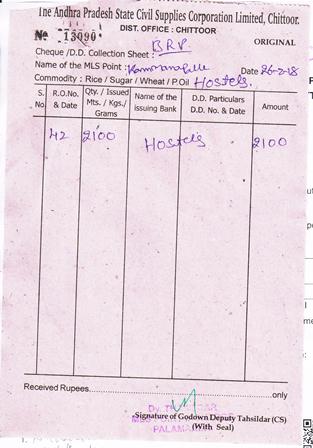 The Andhra Pradesh State Civil Supplies Corporation Limited, Chittoor.
DIST. OFFICE : CHITTOOR
№ 13090 ORIGINAL
Cheque /D.D. Collection Sheet : B.R.P.
Name of the MLS Point : Date 26-2-18
Commodity : Rice / Sugar / Wheat / P.Oil Hostels.
S. No. R.O.No. & Date Qty. / Issued Mts. / Kgs./ Grams Name of the issuing Bank D.D. Particulars D.D. No. & Date Amount
42 2100 Hostels 2100
Received Rupees only
Signature of Godown Deputy Tahsildar (CS)
(With Seal)